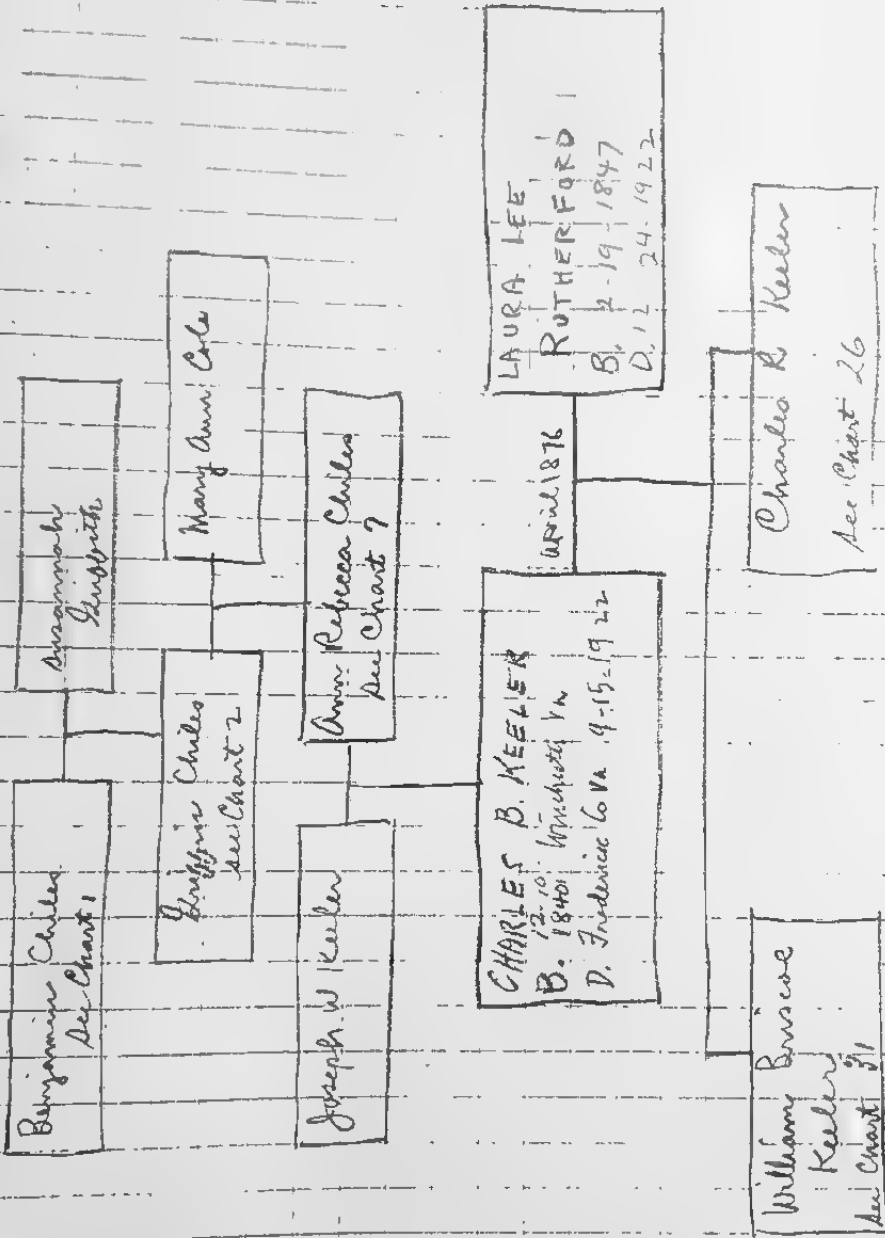 Benjamin Chiles
See Chart 1
Susannah
Griffin Chiles
See Chart 2
Mary Ann Cole
Joseph W Keeler
Ann Rebecca Chiles
See Chart 7
CHARLES B. KEELER
B. 12-10
1840 Winchester Va
D. Frederick Co Va 9-15-1922
April 1876
LAURA LEE
RUTHERFORD
B. 2-19-1847
D. 12 24-1922
William Briscoe
Keeler
See Chart 31
Charles R Keeler
See Chart 26